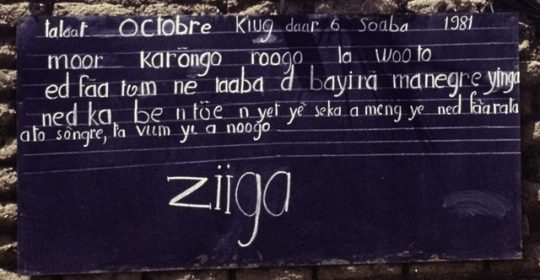 talaat OCTOBRE Kiug daar 6 Soaba 1981
moor karõngo roogo la wooto
ed fãa tʋm ne taaba d bayirã manegre yinga
ned ka be n tõe n yet yẽ seka a meng ye ned fãa rata
a to sõngre, ta vɩɩm yɩ a noogo
ziiga